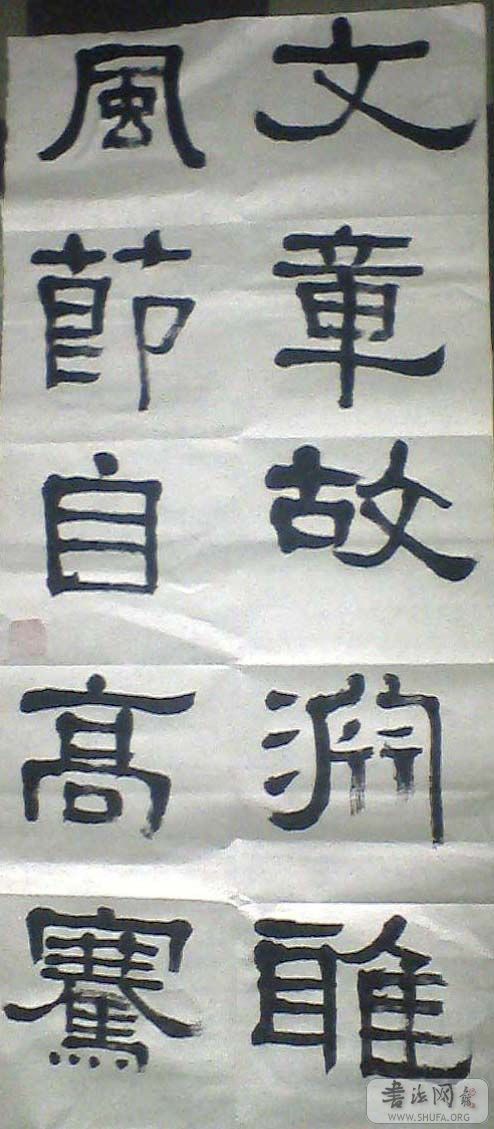 文章故淵雅
風節自高騫
書法网
WWW.SHUFA.ORG